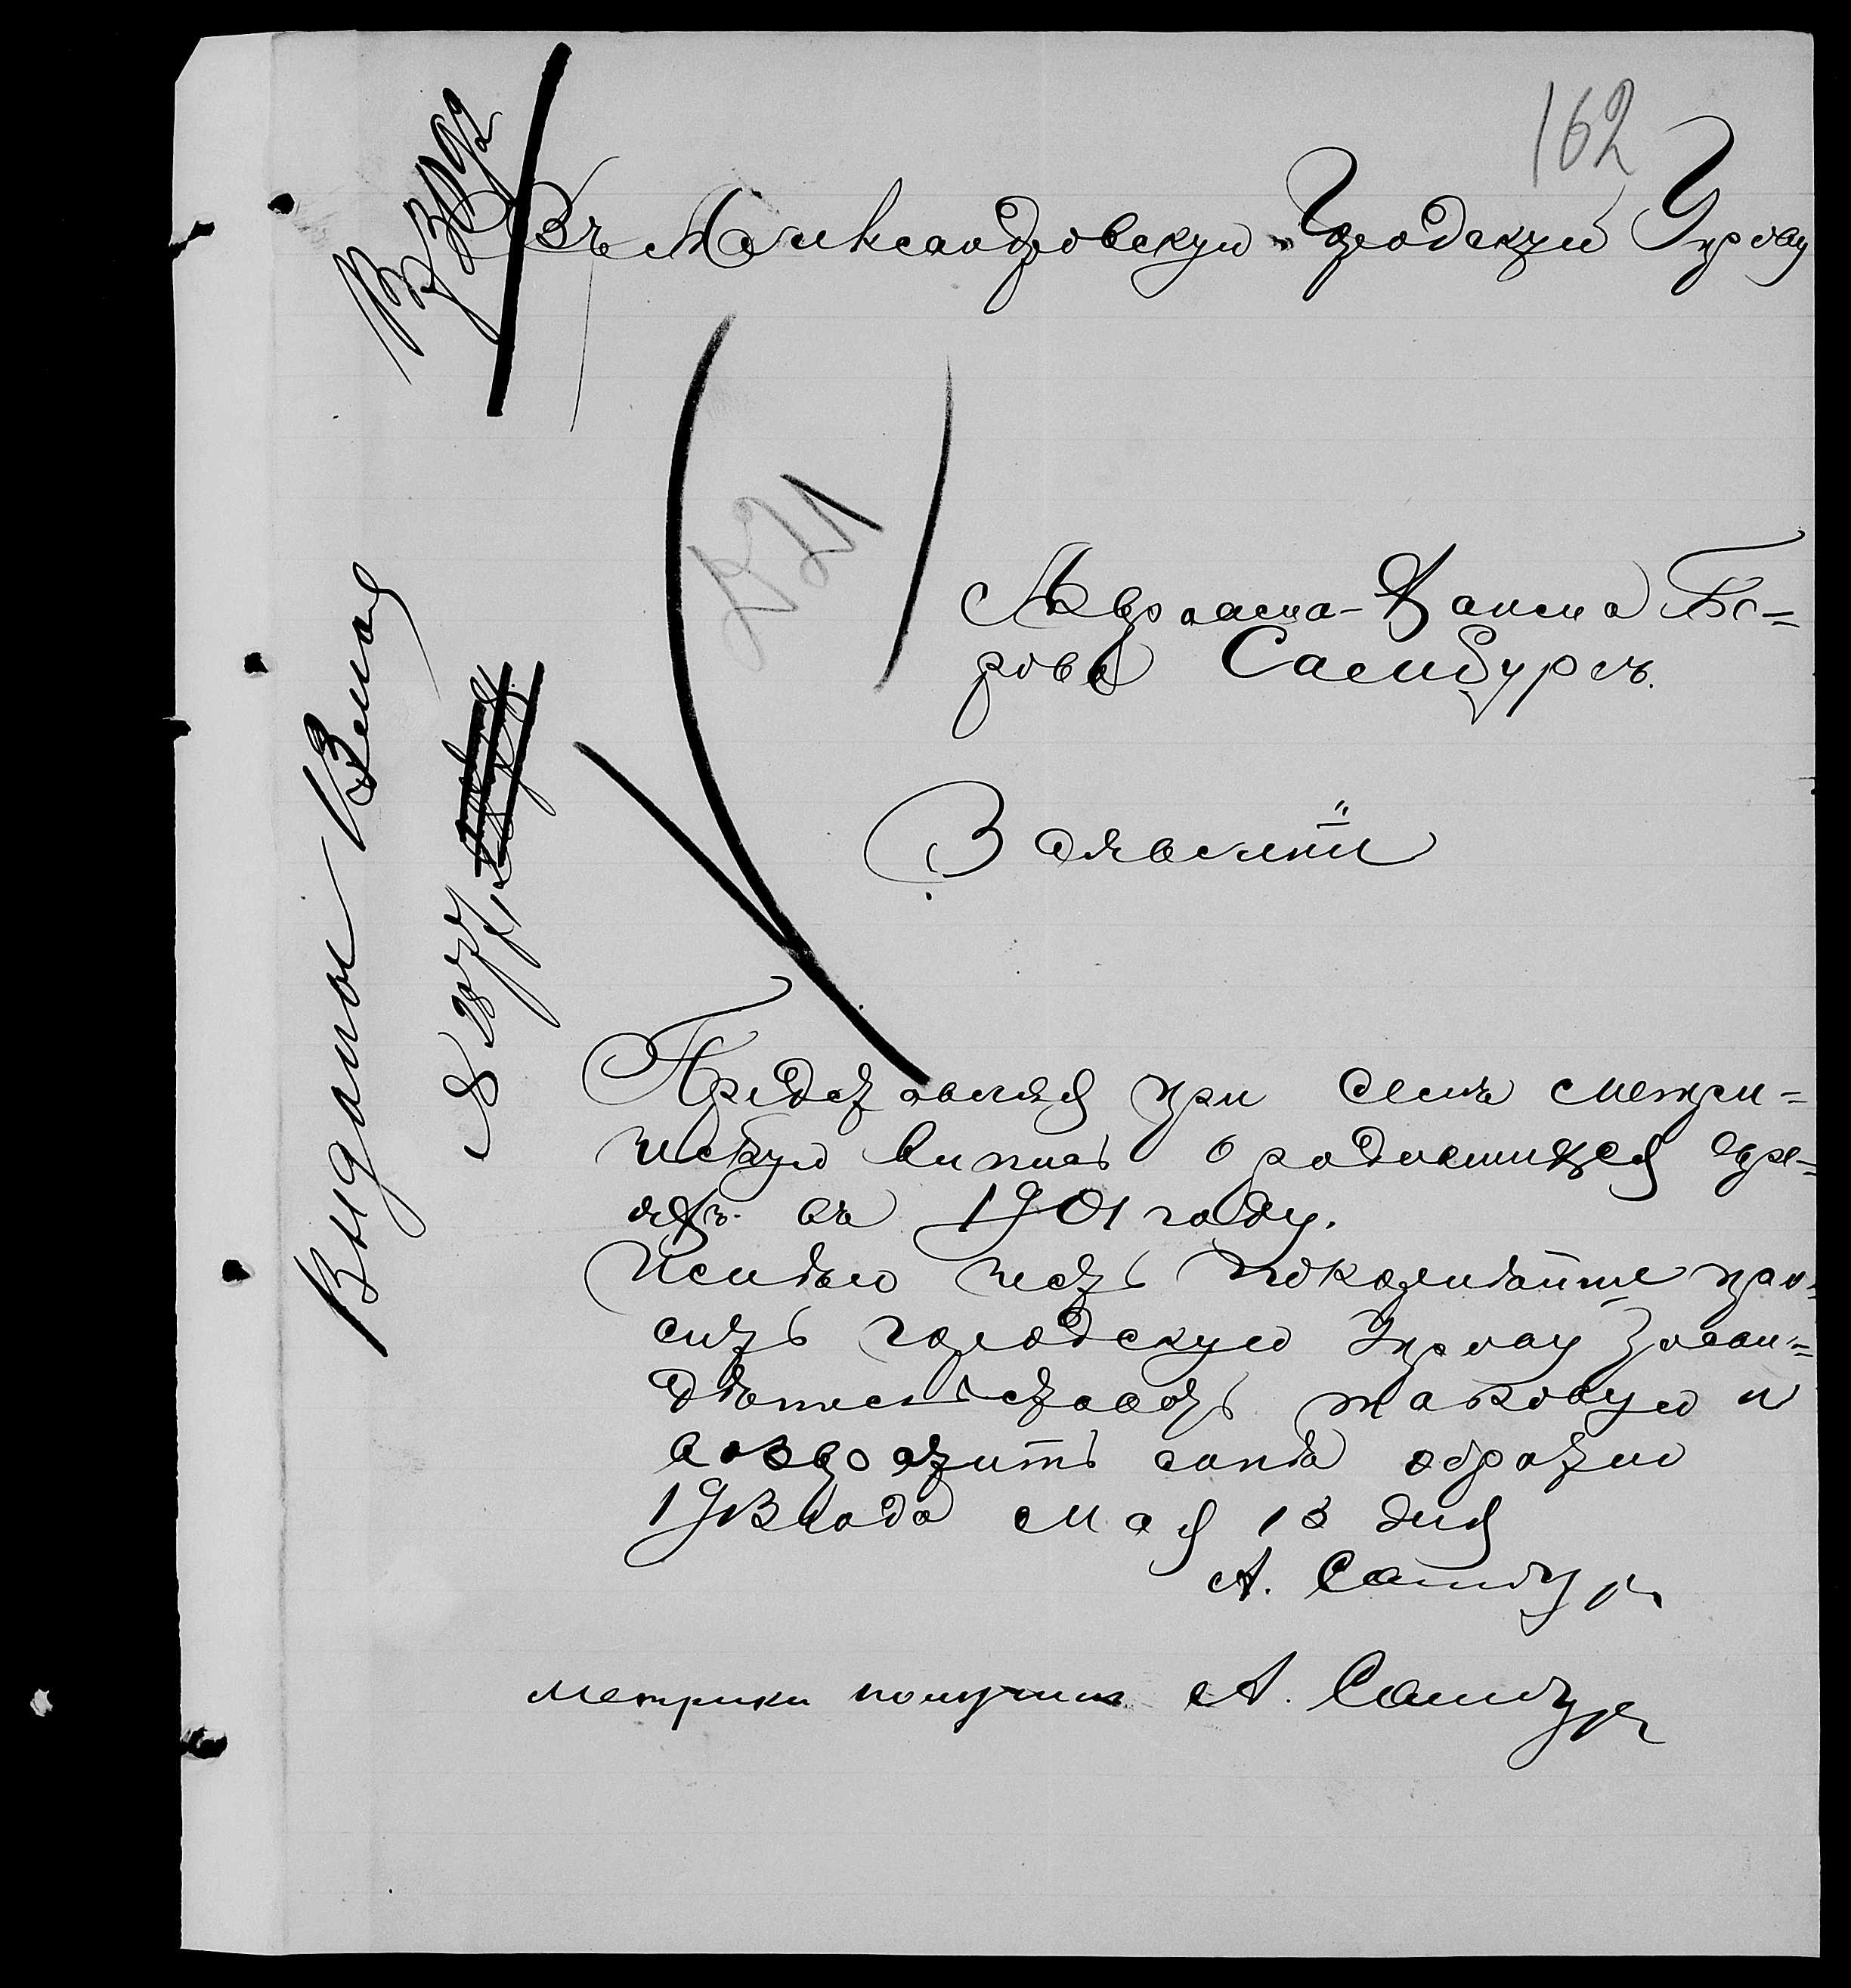 162
Въ Александровскую Городскую Управу
Аврама-Хаима Бе-
рова Самбурсъ.
Заявленіе
Представляя при семъ метри-
ческую выпись о родившихся евре-
яхъ въ 1901 году.
Имѣю честь покорнѣйше про-
сить городскую Управу засви-
дѣтельствовать таковую и
возвратить мнѣ обратно
1903 года мая 13 дня
А. Самбур
метрики получилъ А. Самбур
Выданы